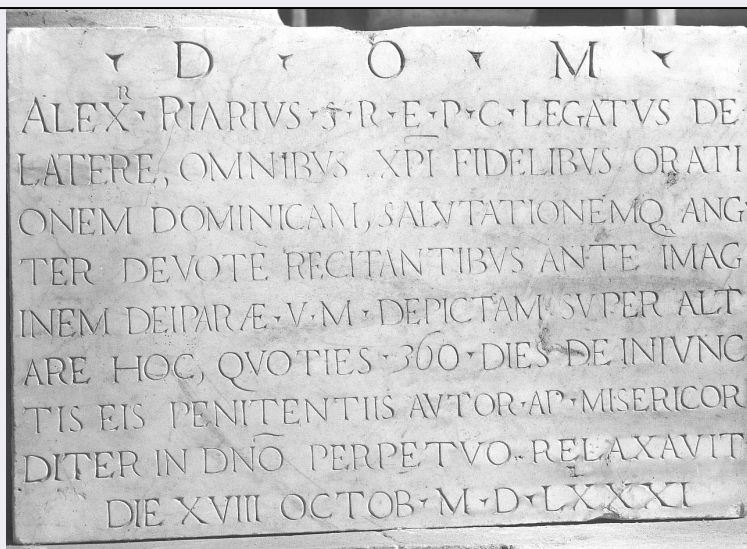 D · O · M
ALEXᴿ · RIARIVS · S · R · E · P · C · LEGATVS DE
LATERE, OMNIBVS XP̅I FIDELIBVS ORATI
ONEM DOMINICAM, SALVTATIONEMQ ANG
TER DEVOTE RECITANTIBVS ANTE IMAG
INEM DEIPARÆ · V · M · DEPICTAM SVPER ALT
ARE HOC, QVOTIES · 360 · DIES DE INIVNC
TIS EIS PENITENTIIS AVTOR · AP · MISERICOR
DITER IN DNO̅ PERPETVO · RELAXAVIT
DIE XVIII OCTOB · M · D · LXXXI